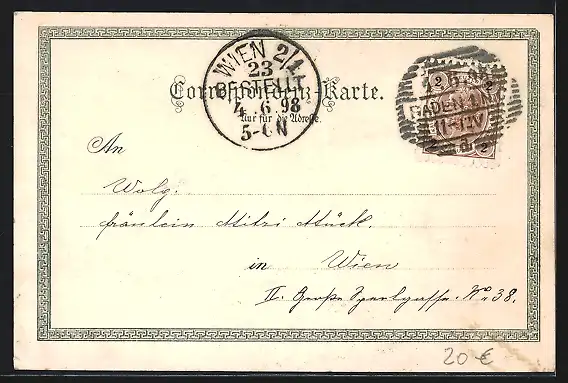 WIEN 2/1
23
BESTELLT
4. 6. 98
5-6N
Correspondenz-Karte.
Nur für die Adresse.
2 2
BADEN
11-12V
2 2
An
Wolg.
fräulein Mitzi Mück.
in Wien
II. Große Sperlgasse. No 38.
20 €